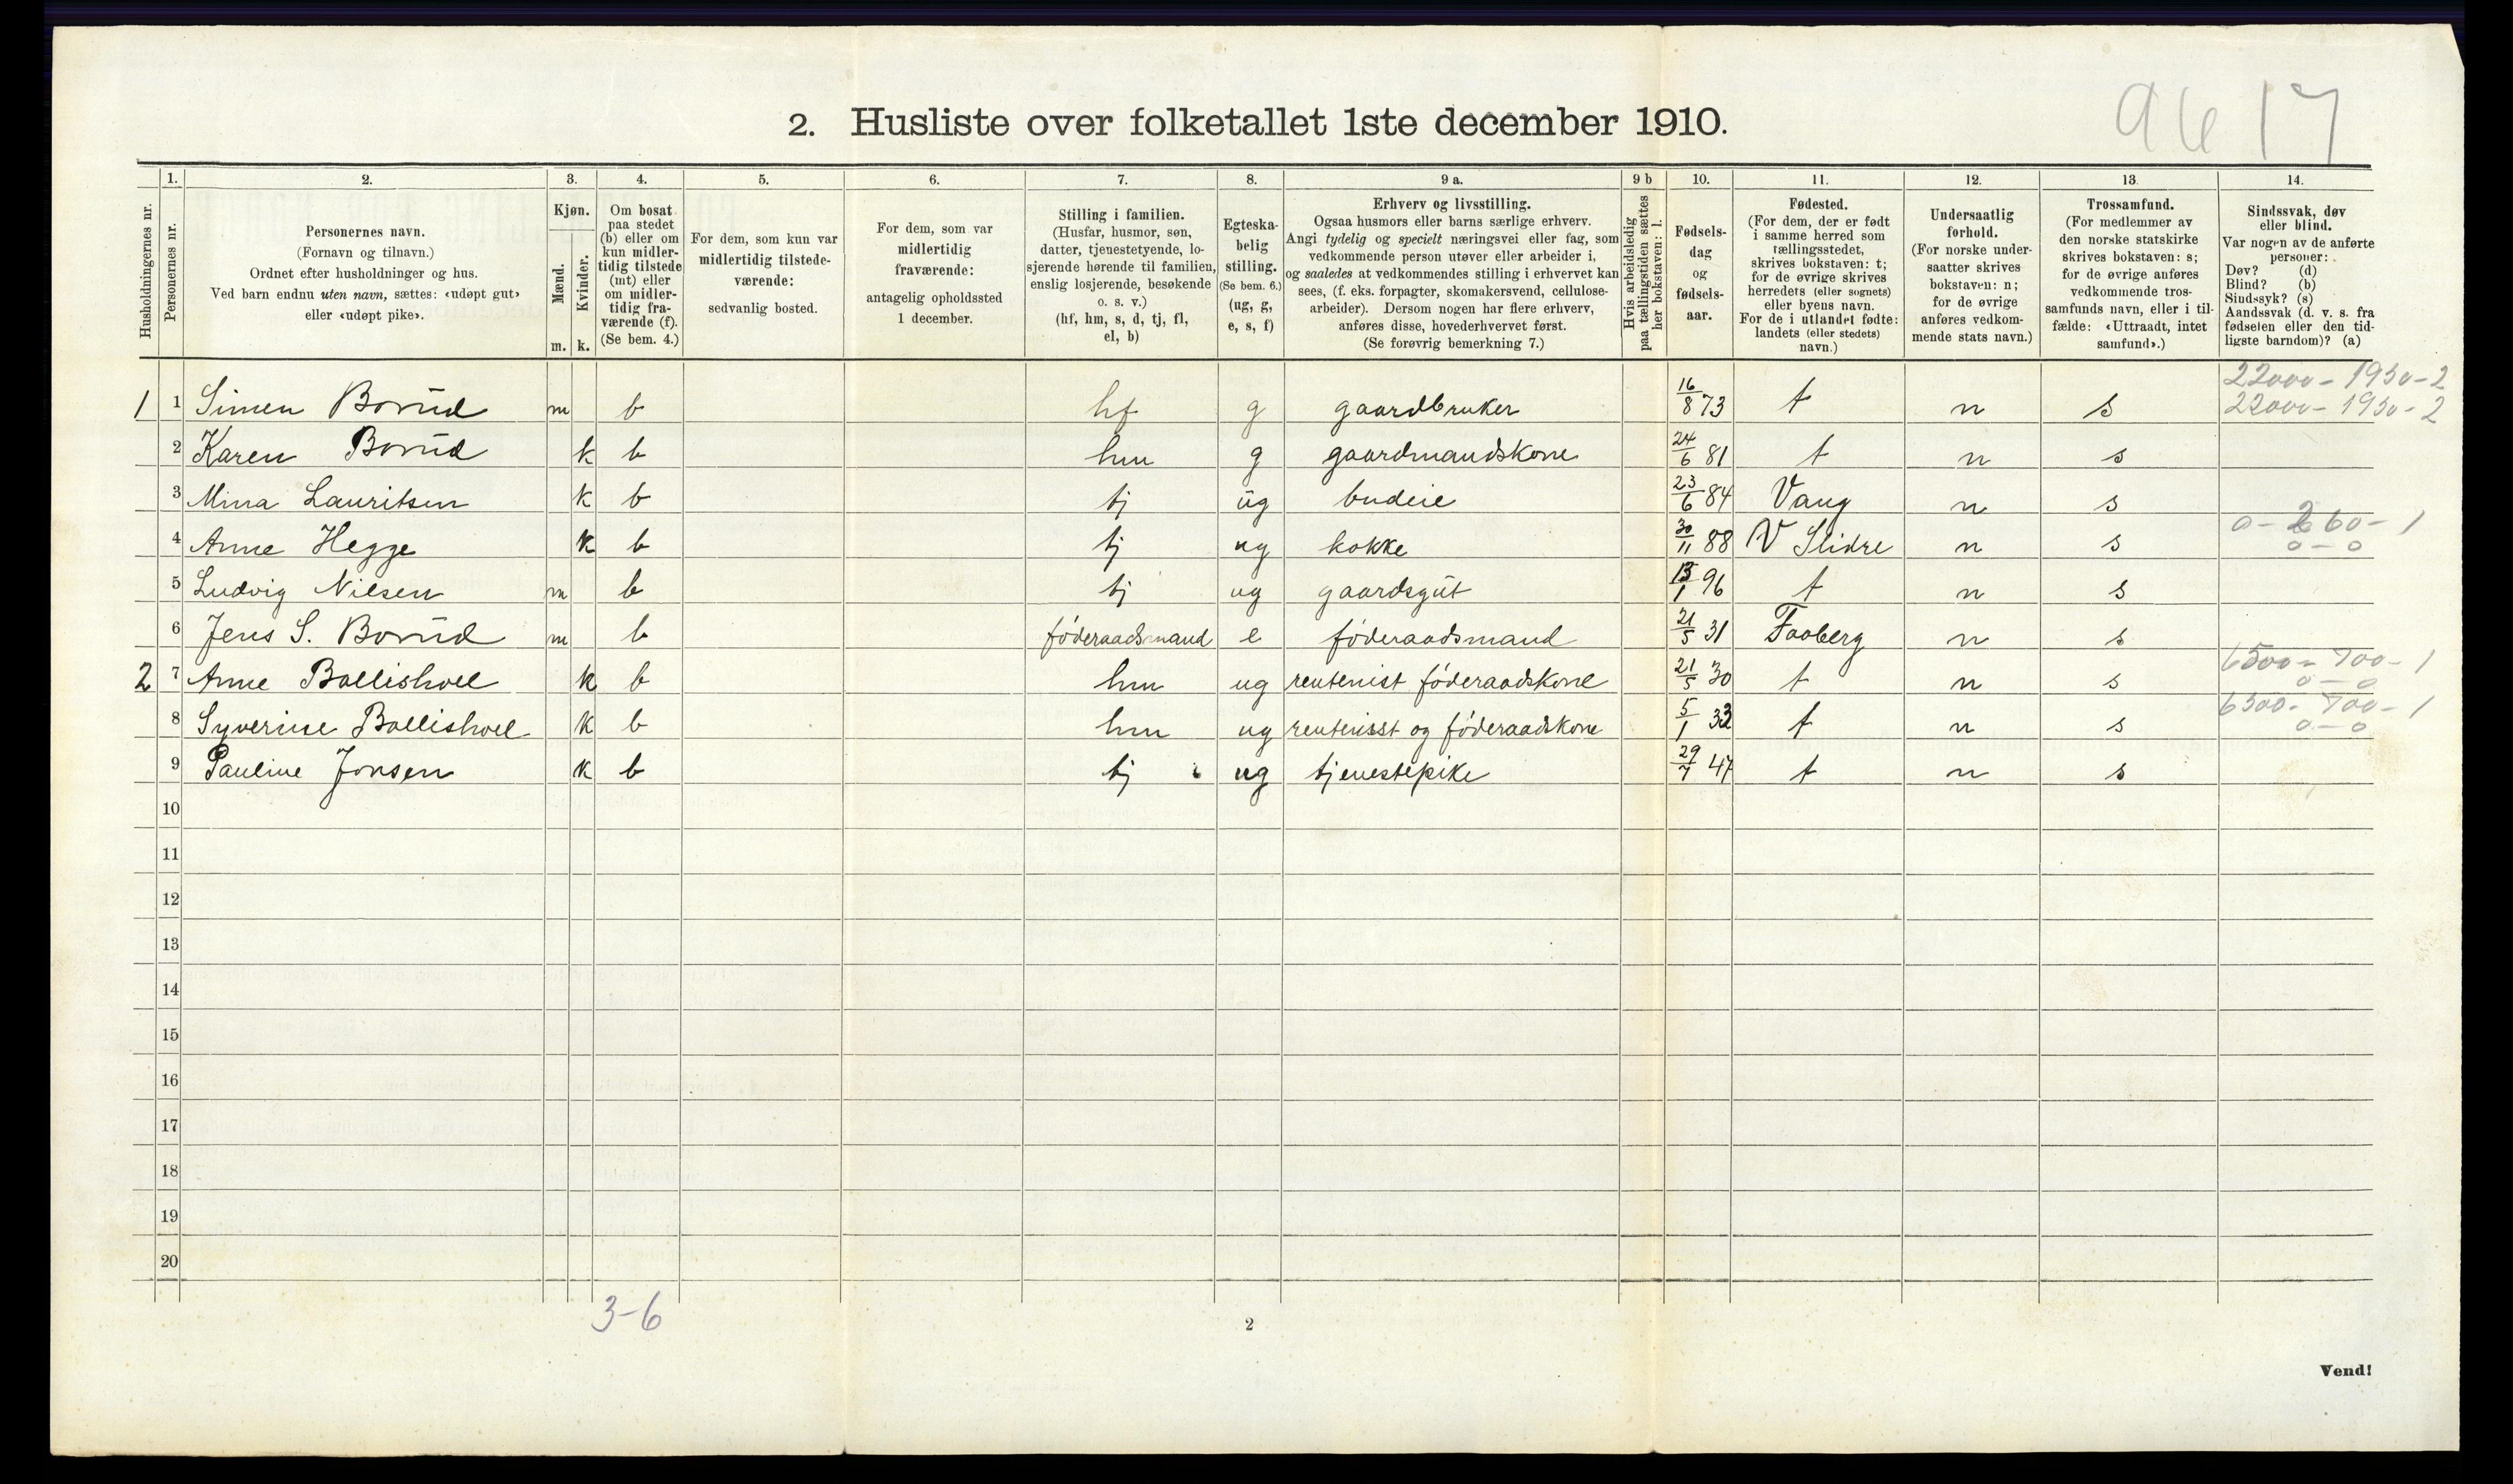 9617
2. Husliste over folketallet 1ste december 1910.
1. 2. 3. 4. 5. 6. 7. 8. 9 a. 9 b 10. 11. 12. 13. 14.
Husholdningernes nr.
Personernes nr.
Personernes navn.
(Fornavn og tilnavn.)
Ordnet efter husholdninger og hus.
Ved barn endnu uten navn, sættes: «udøpt gut»
eller «udøpt pike».
Kjøn.
Mænd.
Kvinder.
m. k.
Om bosat
paa stedet
(b) eller om
kun midler-
tidig tilstede
(mt) eller
om midler-
tidig fra-
værende (f).
(Se bem. 4.)
For dem, som kun var
midlertidig tilstede-
værende:
sedvanlig bosted.
For dem, som var
midlertidig
fraværende:
antagelig opholdssted
1 december.
Stilling i familien.
(Husfar, husmor, søn,
datter, tjenestetyende, lo-
sjerende hørende til familien,
enslig losjerende, besøkende
o. s. v.)
(hf, hm, s, d, tj, fl,
el, b)
Egteska-
belig
stilling.
(Se bem. 6.)
(ug, g,
e, s, f)
Erhverv og livsstilling.
Ogsaa husmors eller barns særlige erhverv.
Angi tydelig og specielt næringsvei eller fag, som
vedkommende person utøver eller arbeider i,
og saaledes at vedkommendes stilling i erhvervet kan
sees, (f. eks. forpagter, skomakersvend, cellulose-
arbeider). Dersom nogen har flere erhverv,
anføres disse, hovederhvervet først.
(Se forøvrig bemerkning 7.)
Hvis arbeidsledig
paa tællingstiden sættes
her bokstaven: l.
Fødsels-
dag
og
fødsels-
aar.
Fødested.
(For dem, der er født
i samme herred som
tællingsstedet,
skrives bokstaven: t;
for de øvrige skrives
herredets (eller sognets)
eller byens navn.
For de i utlandet fødte:
landets (eller stedets)
navn.)
Undersaatlig
forhold.
(For norske under-
saatter skrives
bokstaven: n;
for de øvrige
anføres vedkom-
mende stats navn.)
Trossamfund.
(For medlemmer av
den norske statskirke
skrives bokstaven: s;
for de øvrige anføres
vedkommende tros-
samfunds navn, eller i til-
fælde: «Uttraadt, intet
samfund».)
Sindssvak, døv
eller blind.
Var nogen av de anførte
personer:
Døv? (d)
Blind? (b)
Sindssyk? (s)
Aandssvak (d. v. s. fra
fødselen eller den tid-
ligste barndom)? (a)
22000 - 1930 - 2
1 1 Simen Borud m b hf g gaardbruker 16/8 73 t n s 22000 - 1930 - 2
2 Karen Borud k b hm g gaardmandskone 24/6 81 t n s
3 Mina Lauritsen k b tj ug budeie 23/6 84 Vang n s
4 Anne Hegge k b tj ug kokke 30/11 88 V Slidre n s 0 - 260 - 1
0 - 0
5 Ludvig Nilsen m b tj ug gaardsgut 13/1 96 t n s
6 Jens S. Borud m b föderaadsmand e föderaadsmand 21/5 31 Faaberg n s
2 7 Anne Bollishoel k b hm ug rentenist föderaadskone 21/5 30 t n s 6500 - 700 - 1
0 - 0
8 Syverine Bollishoel k b hm ug rentenisst og föderaadskone 5/1 33 t n s 6300 - 700 - 1
0 - 0
9 Pauline Jonsen k b tj ug tjenestepike 29/7 47 t n s
10
11
12
13
14
15
16
17
18
19
20
3-6
2
Vend!